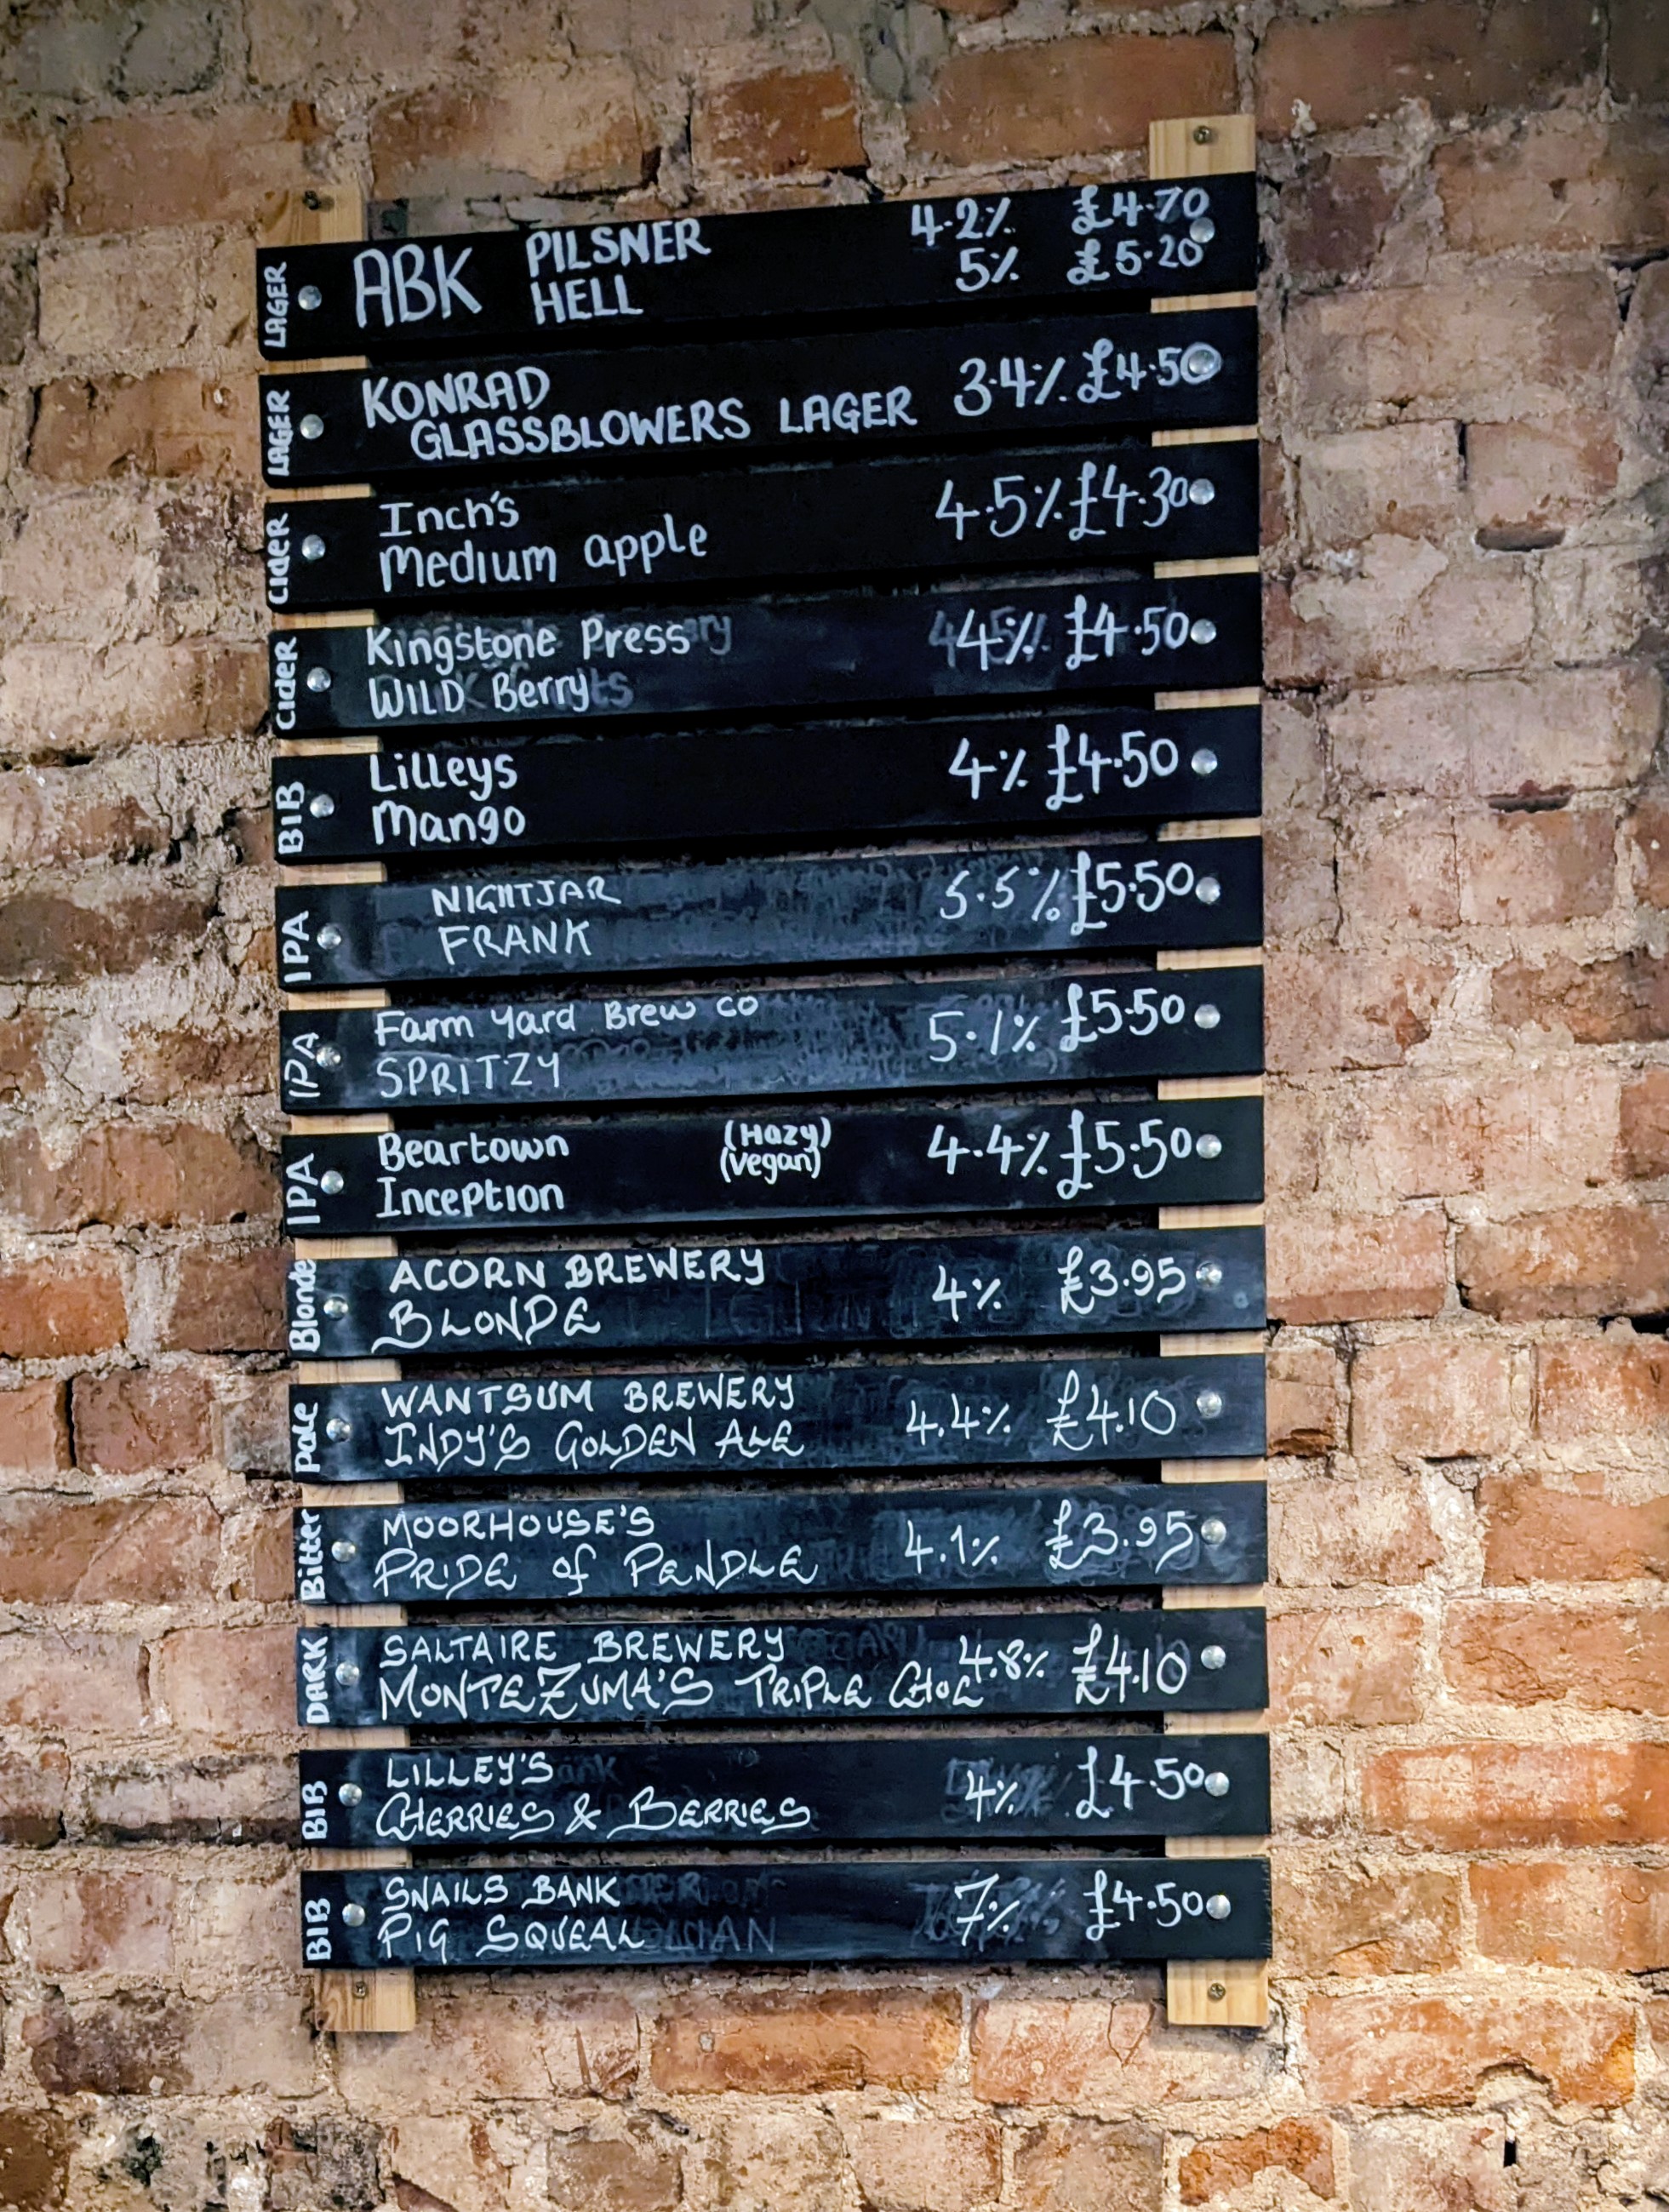 LAGER ABK PILSNER 4.2% £4.70
HELL 5% £5.20
LAGER KONRAD 3.4% £4.50
GLASSBLOWERS LAGER
Cider Inch's 4.5% £4.30
Medium apple
Cider Kingstone Press 4% £4.50
WILD Berry
BIB Lilleys 4% £4.50
Mango
IPA NIGHTJAR 5.5% £5.50
FRANK
IPA Farm Yard Brew co 5.1% £5.50
SPRITZY
IPA Beartown (Hazy) 4.4% £5.50
Inception (Vegan)
Blonde ACORN BREWERY 4% £3.95
BLONDE
pale WANTSUM BREWERY 4.4% £4.10
INDY'S GOLDEN ALE
Bitter MOORHOUSE'S 4.1% £3.95
PRIDE of PENDLE
DARK SALTAIRE BREWERY 4.8% £4.10
MONTEZUMA'S TRIPLE CHOC
BIB LILLEY'S 4% £4.50
CHERRIES & BERRIES
BIB SNAILS BANK 7% £4.50
PIG SQUEAL